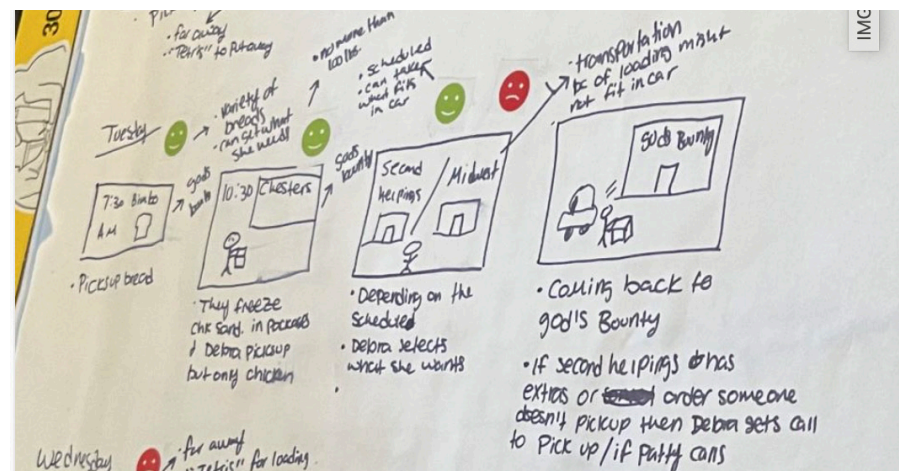 30
• far away
• "Tetris" to Put away
• no more than
Tuesday
• variety of
breads
• can get what
she needs
• scheduled
• can take
what fits
in car
• transportation
bc of loading might
not fit in car
7:30 Bimbo
AM
gods
10:30 Chesters
gods
bounty
Second
helpings
Midwest
God's Bounty
• Picksup bread
• They freeze
chk sand. in packages
& Debra pickup
but only chicken
• Depending on the
scheduled
• Debra selects
what she wants
• Coming back to
god's Bounty
• If second helpings has
extras or order someone
doesn't pickup then Debra gets call
to pick up/if Patty cans
Wednesday
• far away
"Tetris" for loading.
IMG